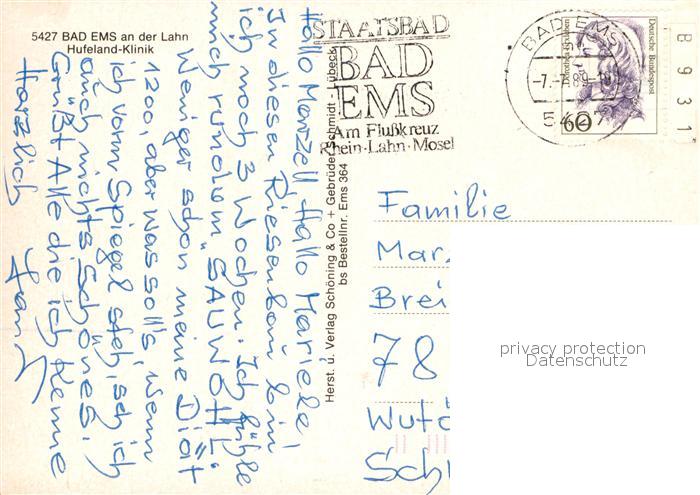 5427 BAD EMS an der Lahn
Hufeland-Klinik
Hallo Marzell, Hallo Mariele,
In diesem Riesenbau bin
ich noch 3 Wochen. Ich fühle
mich rundum "SAUWOHL".
Weniger schon meine Diät
1200, aber was soll's, wenn
ich vorm Spiegel steh, seh ich
auch nichts Schönes.
Grüßt Alle die ich kenne
Herzlich
Herst. u. Verlag Schöning & Co + Gebrüder Schmidt - Lübeck
bs Bestellnr. Ems 364
STAATSBAD
BAD
EMS
Am Flußkreuz
Rhein-Lahn-Mosel
BAD EMS
-7.-7.89-18
5427
Dorothea Erxleben
Deutsche Bundespost
60
B 9 3 1
Familie
Mar
Brei
78
Wutö
Sch
privacy protection
Datenschutz